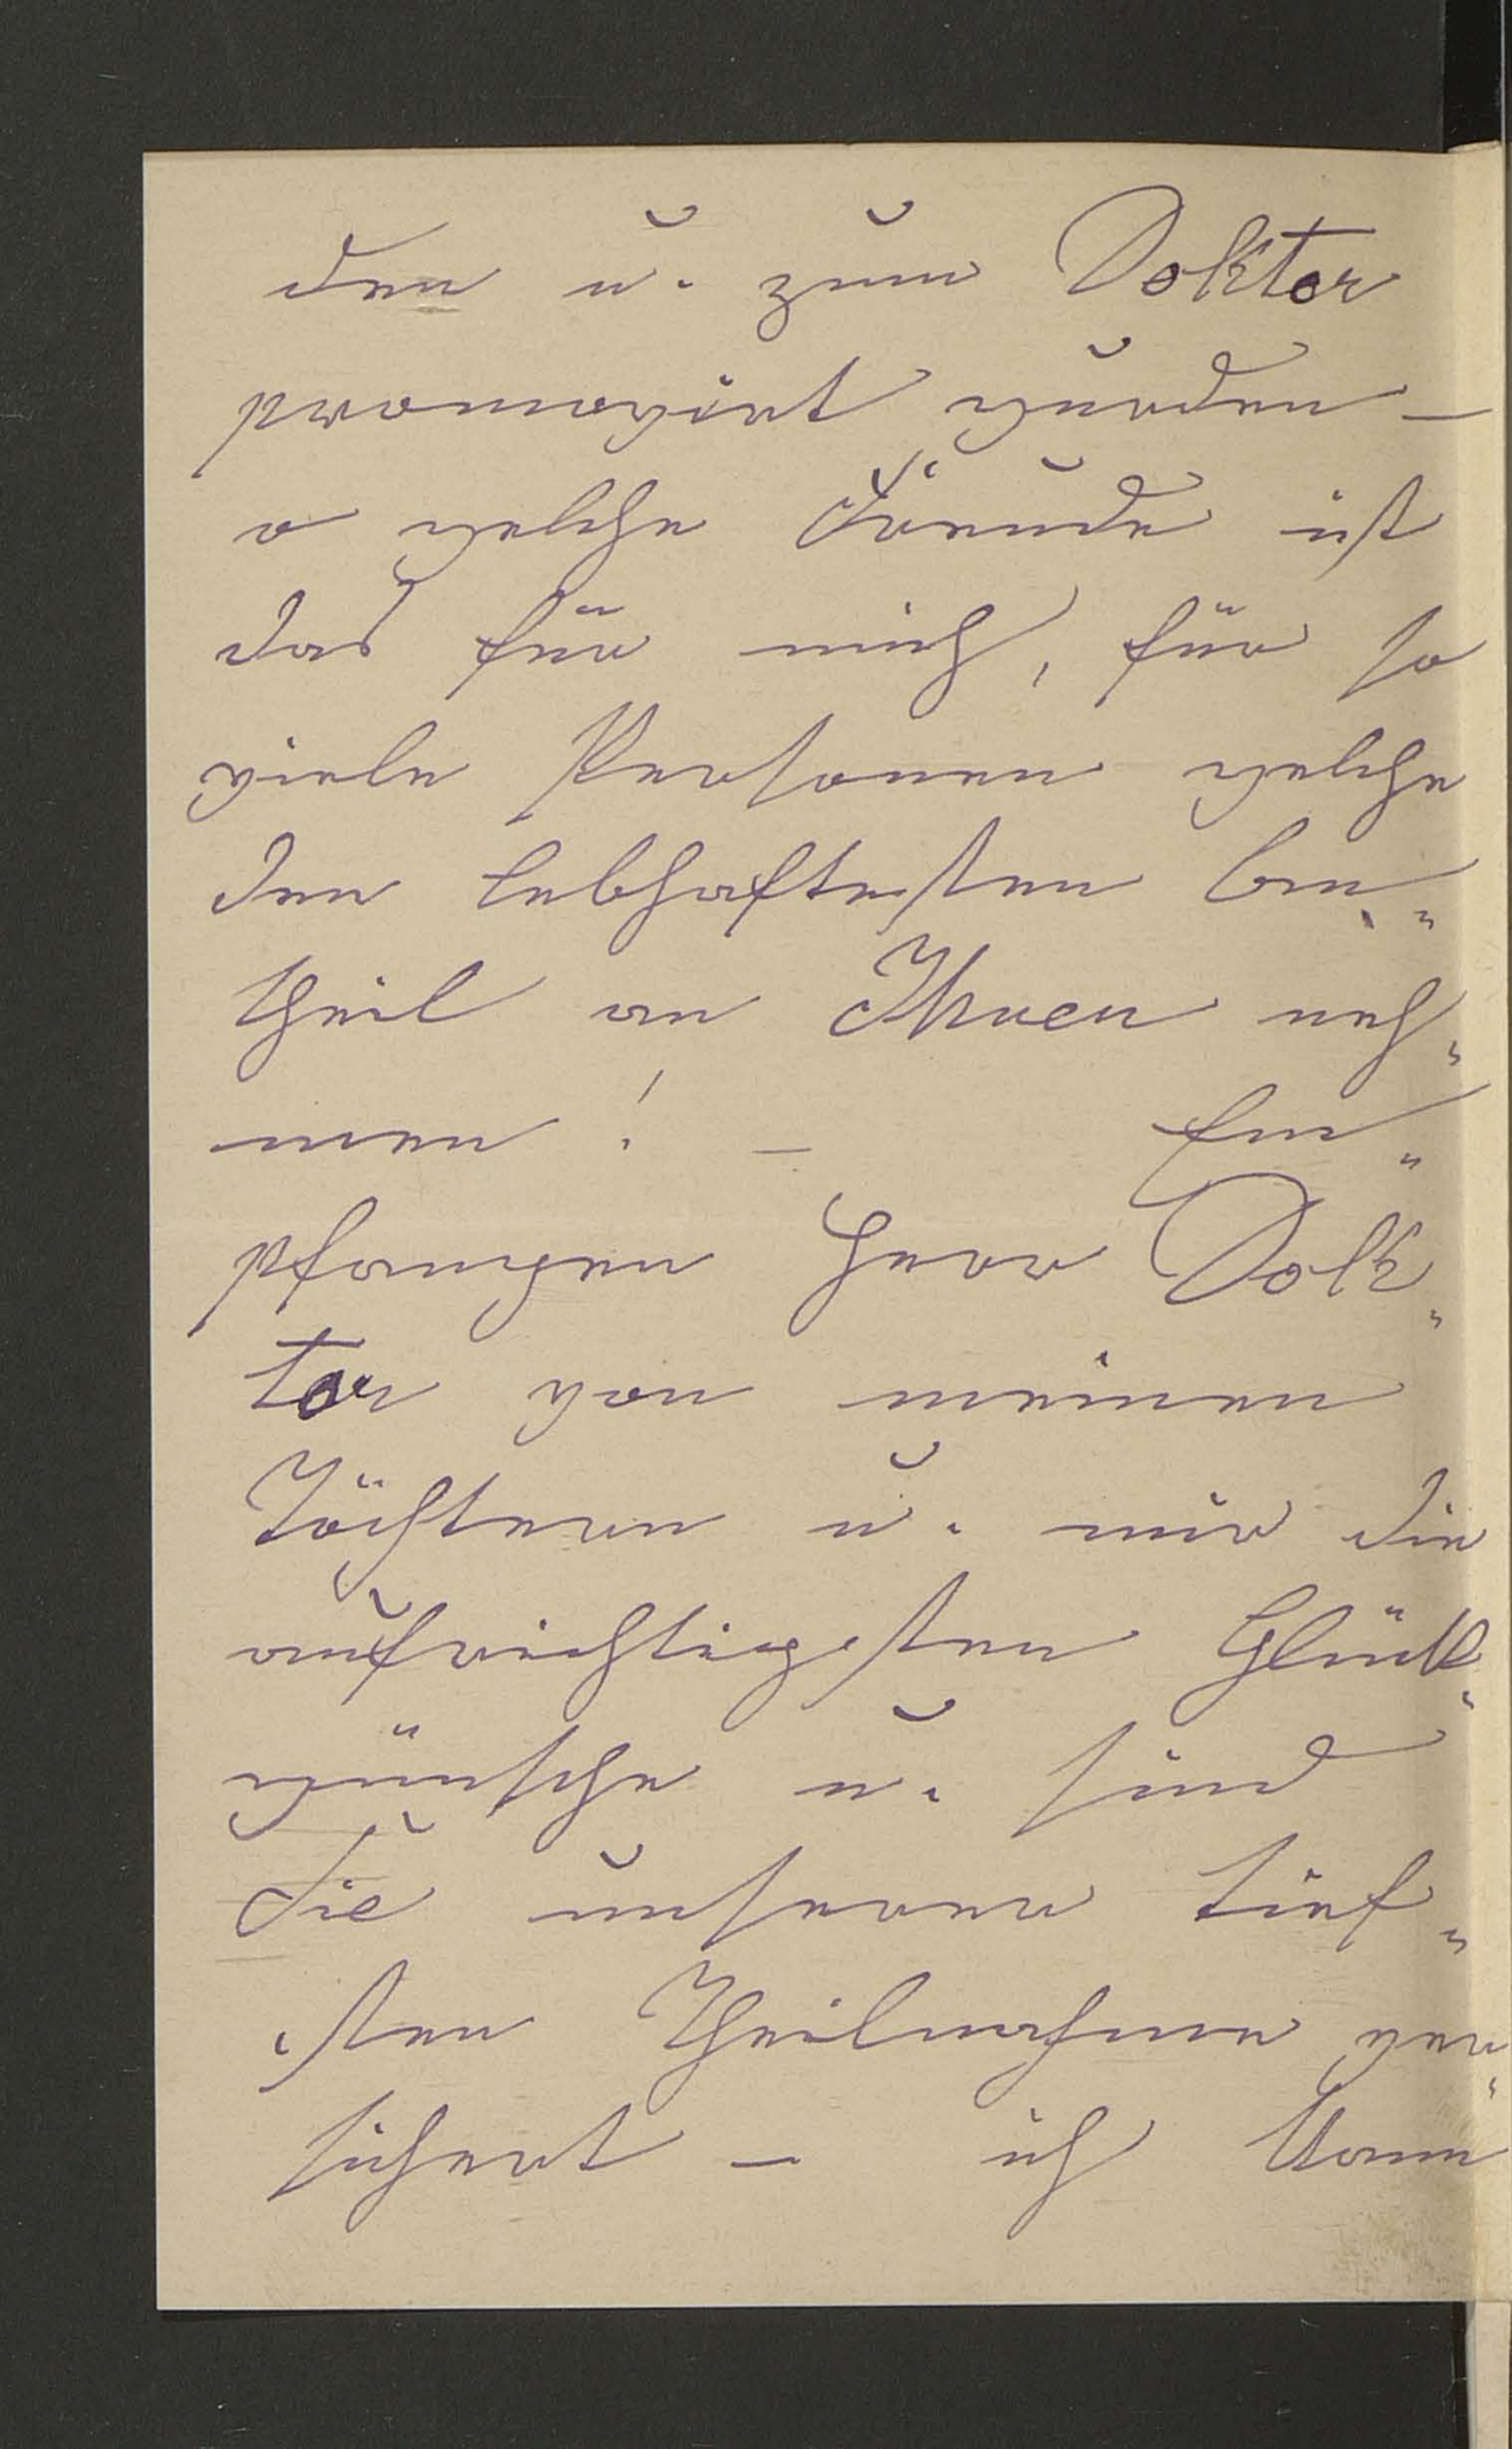 den u. zum Doktor
promovirt wurden –
o welche Freude ist
das für mich, für so
viele Personen welche
den lebhaftesten An„
theil an Ihnen neh„
men! – Em„
pfangen Herr Dok„
tor von meinen
Töchtern u. mir die
aufrichtigsten Glück„
wünsche u. sind
Sie unserer tief„
sten Theilnahme ver„
sichert – ich kann